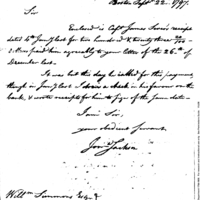 Boston Sept 22. 1797.
Sir
Enclosed is Capt James Sever's receipt
dated 16th June last for five hundred & twenty three 700/
I have paid him agreeably to your letter of the 26th of
December last.
It was but this day he called for this payment,
though in June last I drew a check in his favour on the
bank, & wrote receipts for him to sign of the same date—
I am Sir,
your obedient servant
Jon Jackson
Willm Simmons Esqr